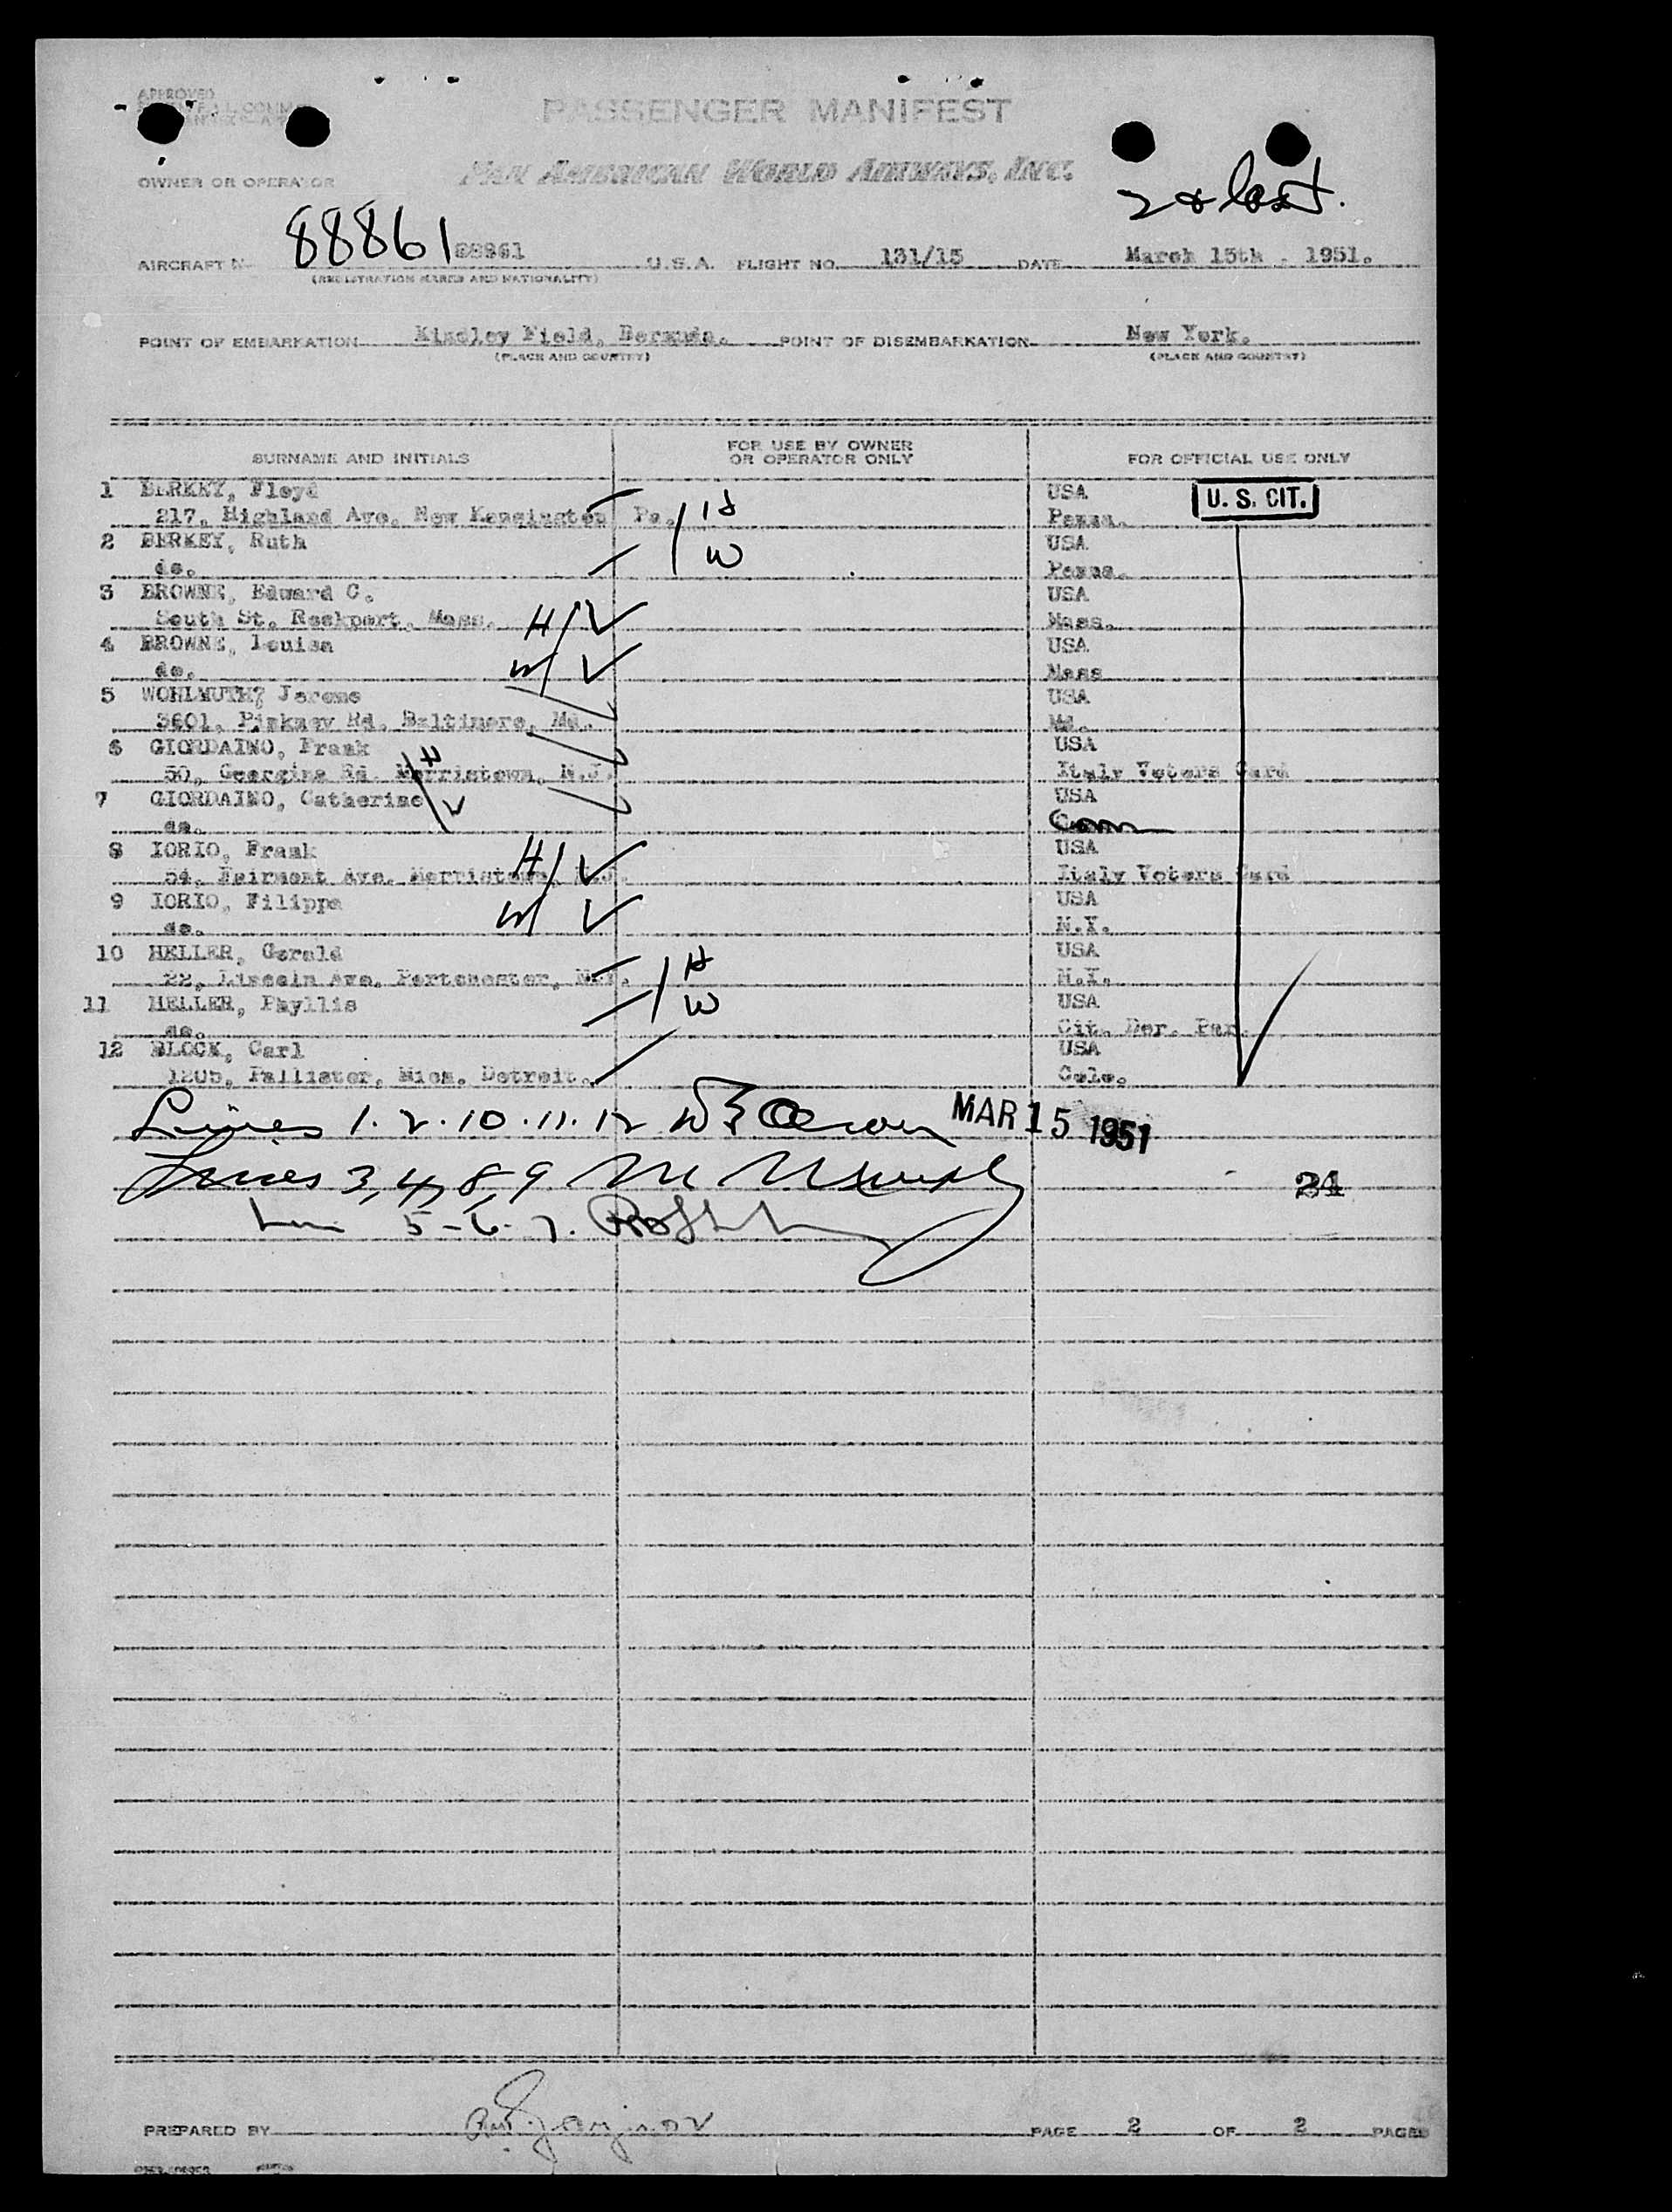 APPROVED
PASSENGER MANIFEST
OWNER OR OPERATOR PAN AMERICAN WORLD AIRWAYS, INC.
2 & last.
AIRCRAFT N 88861 U.S.A. FLIGHT NO. 131/15 DATE March 15th - 1951.
(REGISTRATION MARKS AND NATIONALITY)
POINT OF EMBARKATION Kindley Field, Bermuda. POINT OF DISEMBARKATION New York.
(PLACE AND COUNTRY) (PLACE AND COUNTRY)
SURNAME AND INITIALS FOR USE BY OWNER OR OPERATOR ONLY FOR OFFICIAL USE ONLY
1 BERKEY, Floyd USA U. S. CIT.
217, Highland Ave. New Kensington Pa. H Penna.
2 BERKEY, Ruth W USA
do. Penna.
3 BROWNE, Edward C. USA
South St. Rockport, Mass. H Mass.
4 BROWNE, Louisa USA
do. W Mass
5 WOHLMUTH? Jerome USA
3601, Pinkney Rd. Baltimore, Md. Md.
6 GIORDAINO, Frank USA
50, Georgina Rd. Morristown, N.J. H Italy Voters Card
7 GIORDAINO, Catherine USA
do. Conn
8 IORIO, Frank USA
54, Fairmont Ave. Morristown, N.J. H Italy Voters Card
9 IORIO, Filippa W USA
do. N.Y.
10 HELLER, Gerald USA
22, Lincoln Ave. Portchester, N.Y. H N.Y.
11 HELLER, Phyllis W USA
do. Cit. Der. Par.
12 BLOCK, Carl USA
1205, Pallister, Mich. Detroit. Colo.
Lines 1. 2. 10. 11. 12 MAR 15 1951
Lines 3, 4, 8, 9 24
5-6-7.
PREPARED BY PAGE 2 OF 2 PAGES